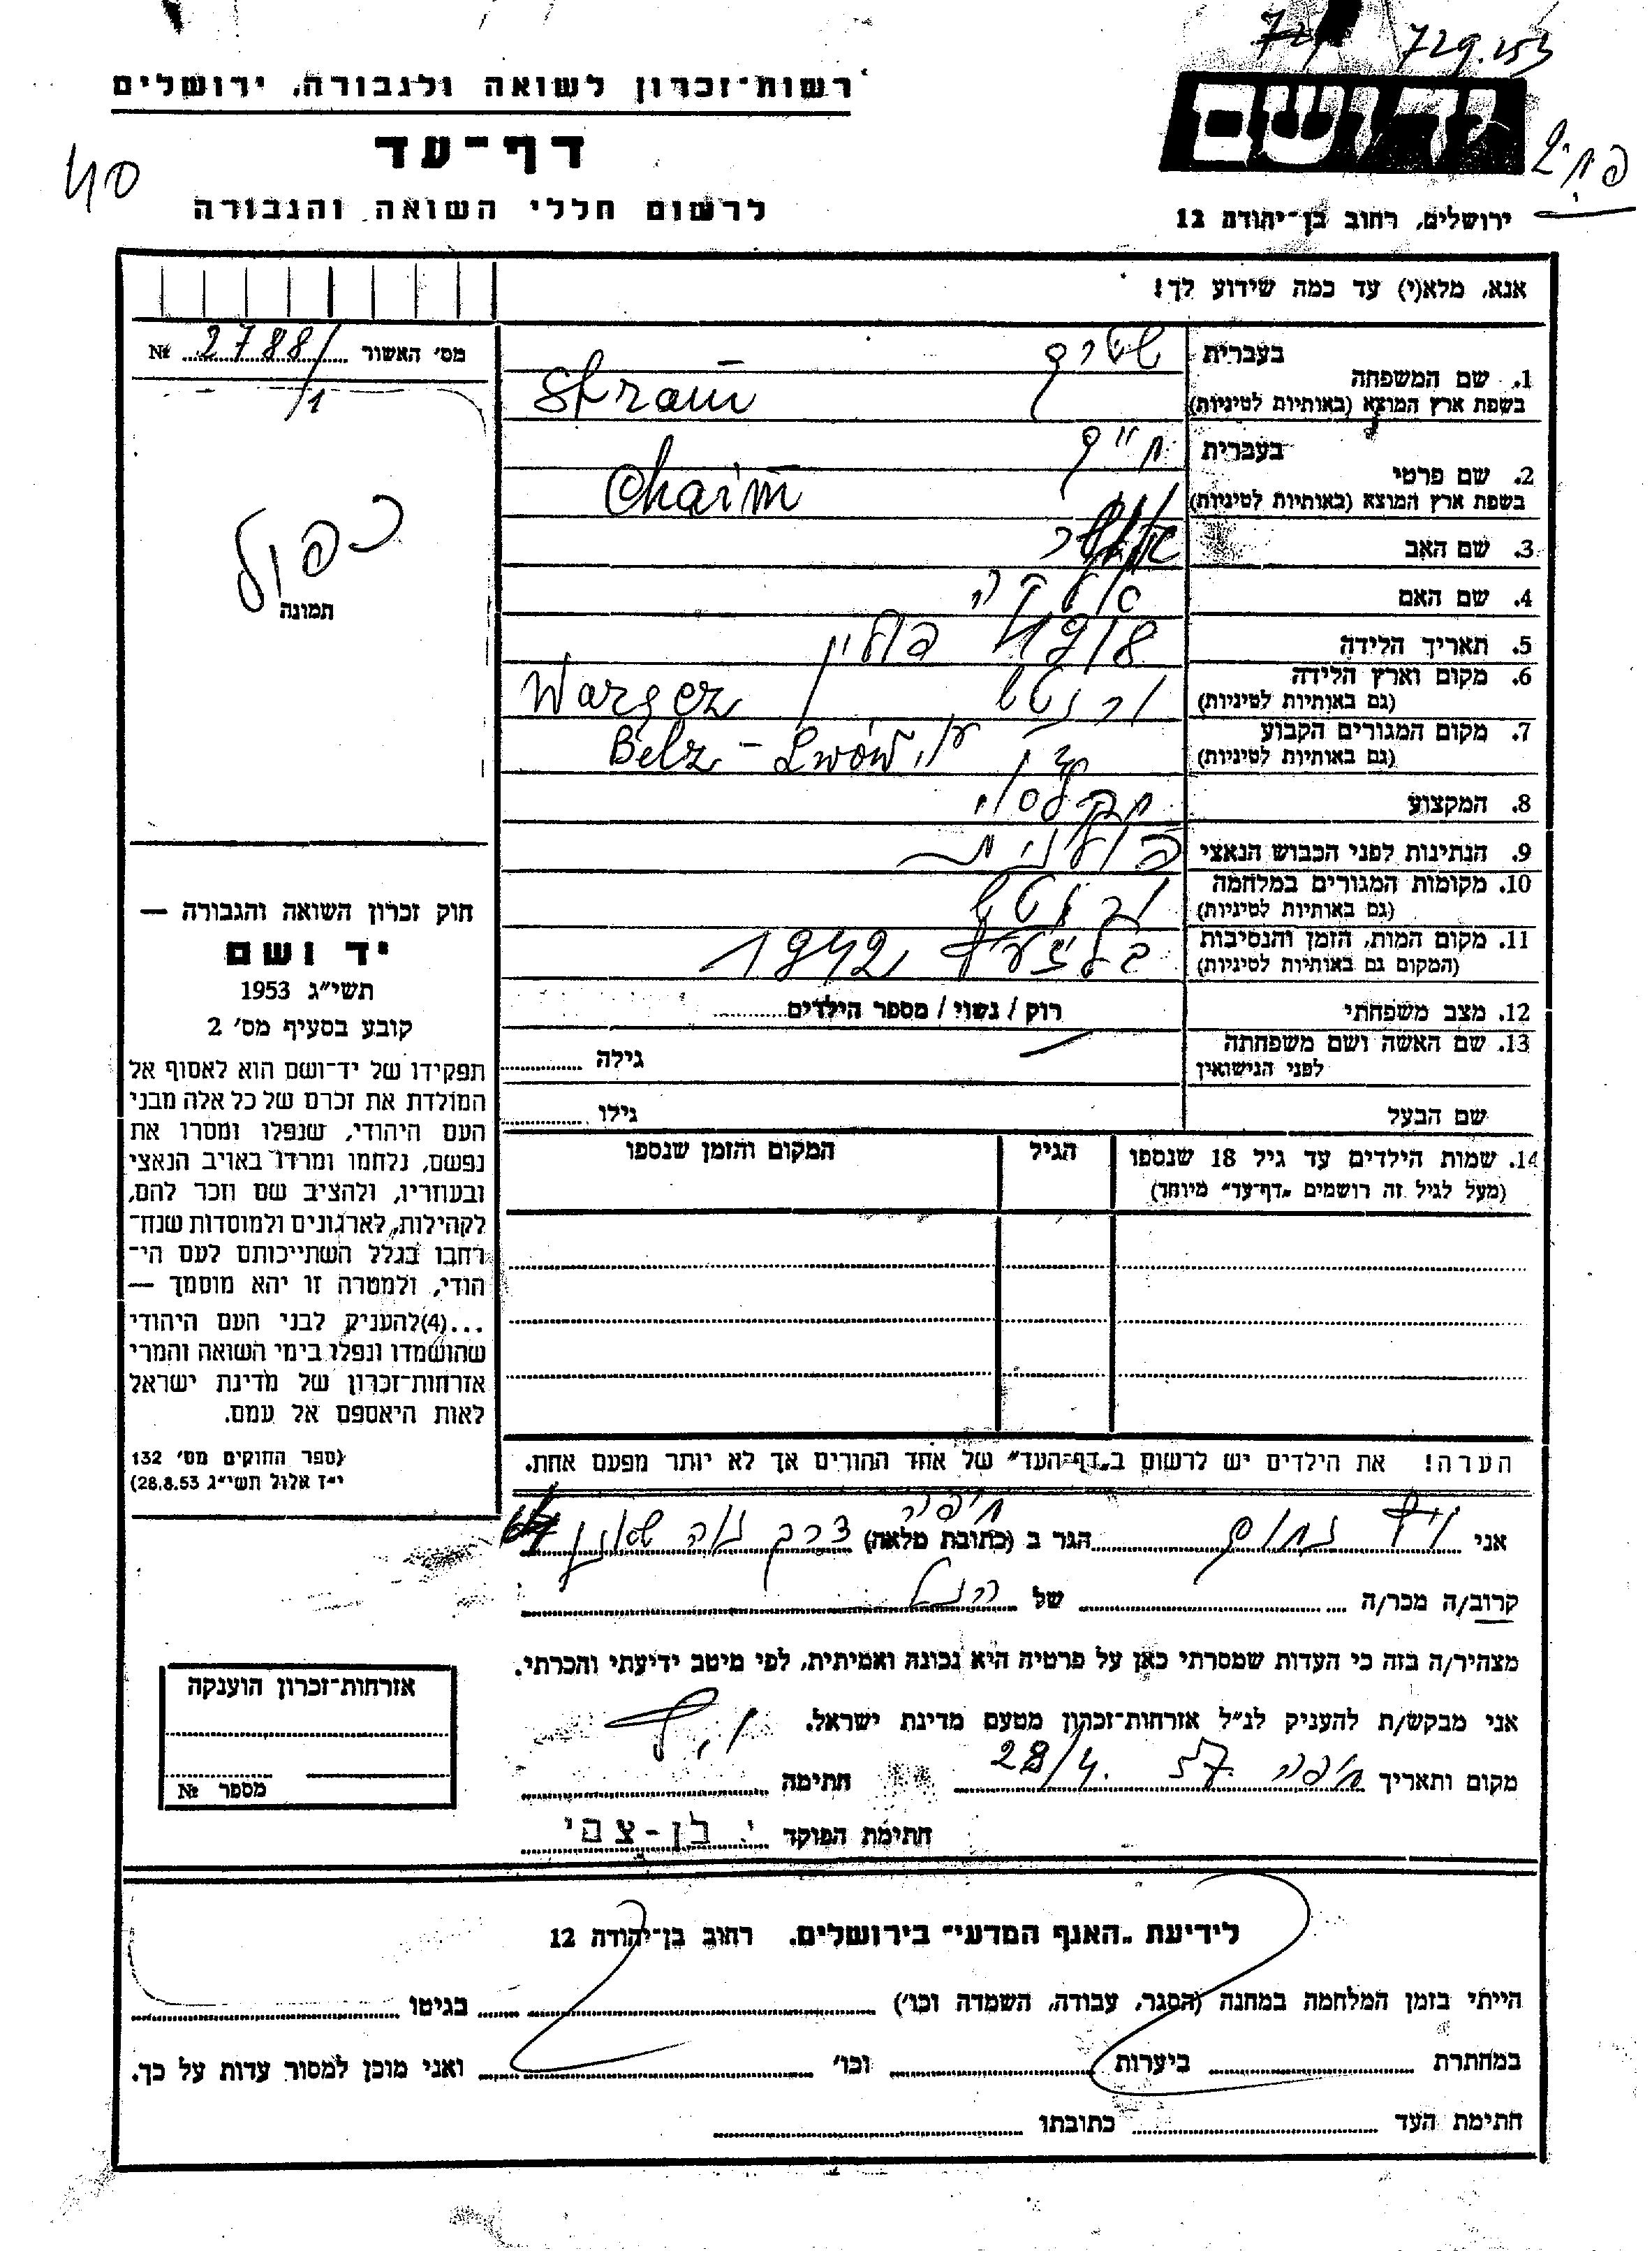 729.253
רשות־זכרון לשואה ולגבורה, ירושלים
יד ושם
דף־עד
40
לרשום חללי השואה והגבורה
ירושלים, רחוב בן־יהודה 12
אנא, מלא(י) עד כמה שידוע לך!
מס׳ האשור № 2788/
1
בעברית
1. שם המשפחה
בשפת ארץ המוצא (באותיות לטיניות)
בעברית חיים
2. שם פרטי
בשפת ארץ המוצא (באותיות לטיניות) Chaim
3. שם האב
4. שם האם
כפול
תמונה
5. תאריך הלידה פולין
6. מקום וארץ הלידה
(גם באותיות לטיניות)
7. מקום המגורים הקבוע
(גם באותיות לטיניות) Belz - Lwów
8. המקצוע
9. הנתינות לפני הכבוש הנאצי פולנית
10. מקומות המגורים במלחמה
(גם באותיות לטיניות)
11. מקום המות, הזמן והנסיבות
(המקום גם באותיות לטיניות) 1942
12. מצב משפחתי רוק / נשוי / מספר הילדים
13. שם האשה ושם משפחתה
לפני הנישואין גילה
שם הבעל גילו
14. שמות הילדים עד גיל 18 שנספו
(מעל לגיל זה רושמים „דף־עד״ מיוחד)
הגיל
המקום והזמן שנספו
חוק זכרון השואה והגבורה —
יד ושם
תשי״ג 1953
קובע בסעיף מס׳ 2
תפקידו של יד־ושם הוא לאסוף אל
המולדת את זכרם של כל אלה מבני
העם היהודי, שנפלו ומסרו את
נפשם, נלחמו ומרדו באויב הנאצי
ובעוזריו, ולהציב שם וזכר להם,
לקהילות, לארגונים ולמוסדות שנח־
רחבו בגלל השתייכותם לעם הי־
הודי, ולמטרה זו יהא מוסמך —
...(4)להעניק לבני העם היהודי
שהושמדו ונפלו בימי השואה והמרי
אזרחות־זכרון של מדינת ישראל
לאות היאספם אל עמם.
(ספר החוקים מס׳ 132
י״ז אלול תשי״ג 28.8.53)
הערה! את הילדים יש לרשום ב„דף־העד״ של אחד ההורים אך לא יותר מפעם אחת.
חיפה
אני נחום הגר ב (כתובת מלאה) דרך נוה שאנן
קרוב/ה מכר/ה ... של הנ״ל
מצהיר/ה בזה כי העדות שמסרתי כאן על פרטיה היא נכונה ואמיתית, לפי מיטב ידיעתי והכרתי.
אני מבקש/ת להעניק לנ״ל אזרחות־זכרון מטעם מדינת ישראל.
מקום ותאריך חיפה 28/4. 57 חתימה
חתימת הפוקד י. בן-צבי
אזרחות־זכרון הוענקה
מספר №
לידיעת „האגף המדעי״ בירושלים. רחוב בן־יהודה 12
הייתי בזמן המלחמה במחנה (הסגר, עבודה, השמדה וכו׳) בגיטו
במחתרת ביערות וכו׳ ואני מוכן למסור עדות על כך.
חתימת העד כתובתו